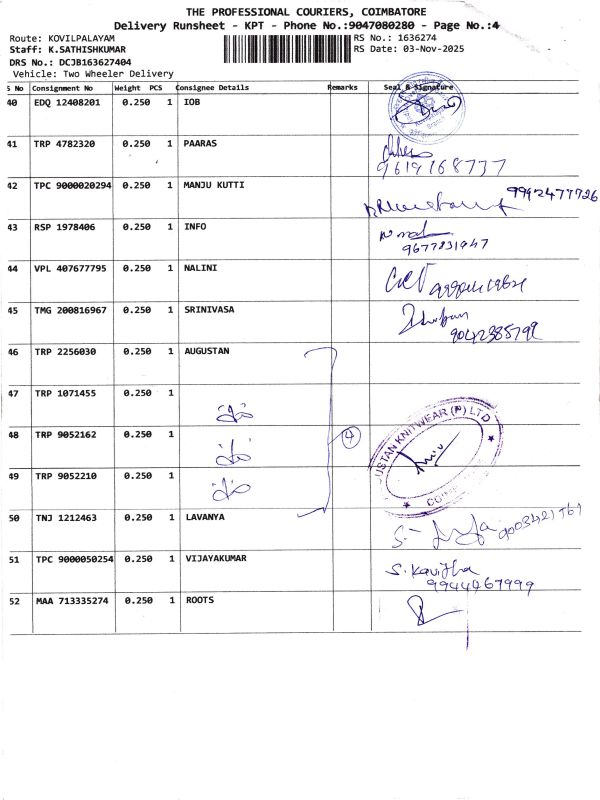 THE PROFESSIONAL COURIERS, COIMBATORE
Delivery Runsheet - KPT - Phone No.:9047080280 - Page No.:4
Route: KOVILPALAYAM RS No.: 1636274
Staff: K.SATHISHKUMAR RS Date: 03-Nov-2025
DRS No.: DCJB163627404
Vehicle: Two Wheeler Delivery
S No Consignment No Weight PCS Consignee Details Remarks Seal & Signature
40 EDQ 12408201 0.250 1 IOB
41 TRP 4782320 0.250 1 PAARAS
9619768737
42 TPC 9000020294 0.250 1 MANJU KUTTI 9992477726
43 RSP 1978406 0.250 1 INFO
9677831947
44 VPL 407677795 0.250 1 NALINI
45 TMG 200816967 0.250 1 SRINIVASA
46 TRP 2256030 0.250 1 AUGUSTAN
47 TRP 1071455 0.250 1
48 TRP 9052162 0.250 1 4
USTAN KNITWEAR (P) LTD
49 TRP 9052210 0.250 1
50 TNJ 1212463 0.250 1 LAVANYA
51 TPC 9000050254 0.250 1 VIJAYAKUMAR
S. Kavitha
9944467999
52 MAA 713335274 0.250 1 ROOTS